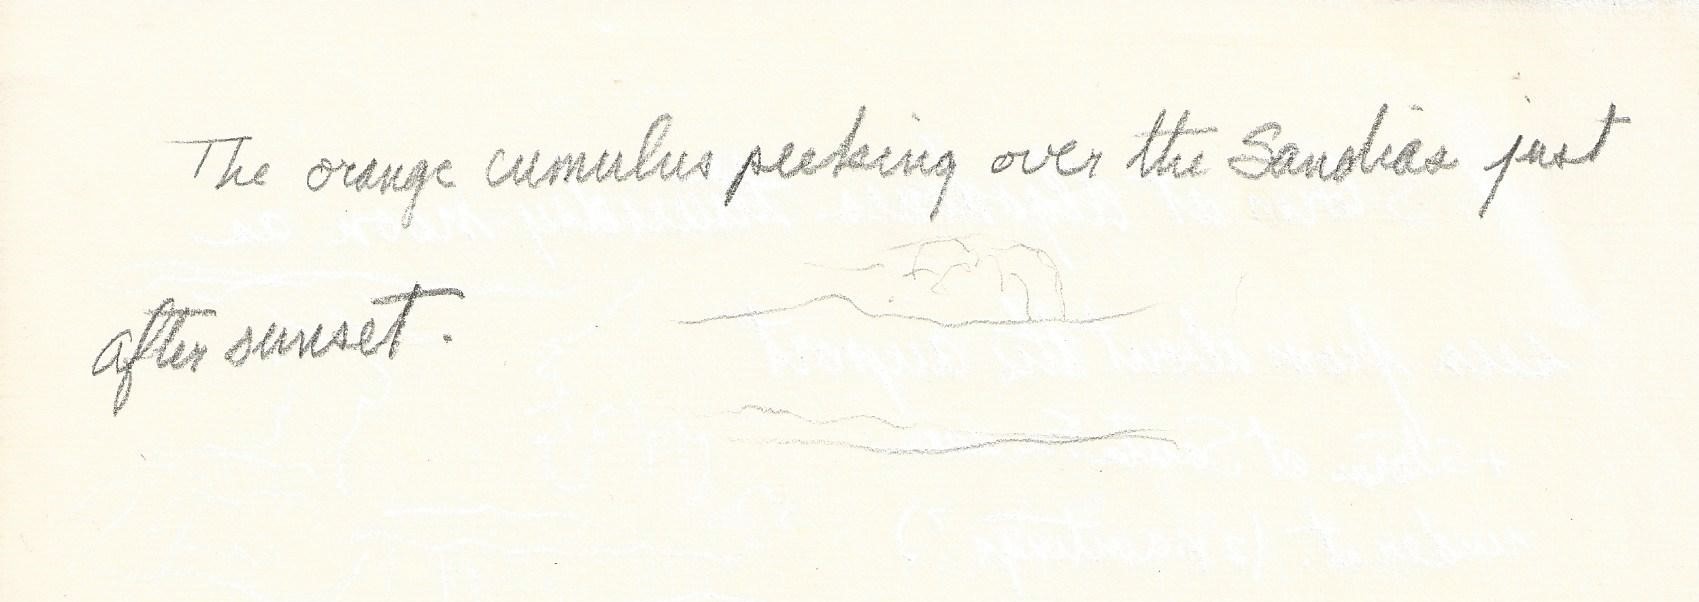 The orange cumulus peeking over the Sandias just
after sunset.